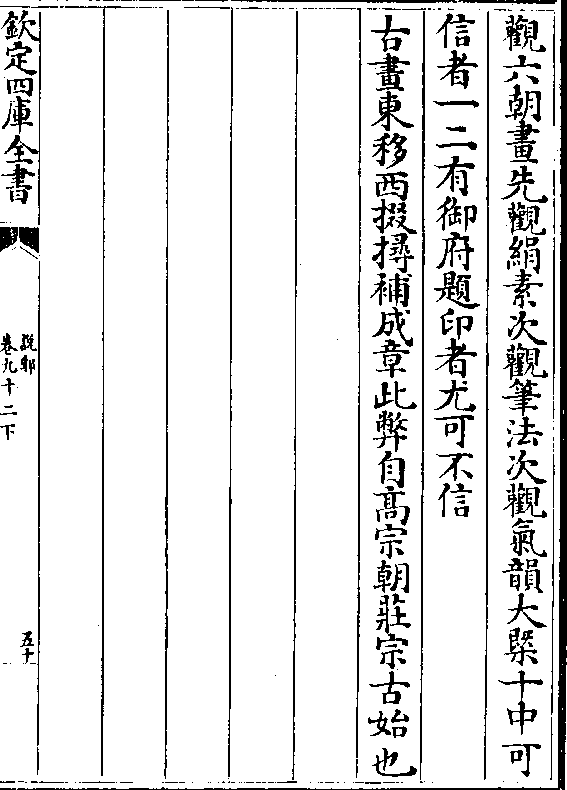 觀六朝畫先觀絹素次觀筆法次觀氣韻大槩十中可
信者一二有御府題印者尤可不信
古畫東移西掇撏補成章此弊自髙宗朝莊宗古始也
欽定四庫全書
說郛
卷九十二下
五十